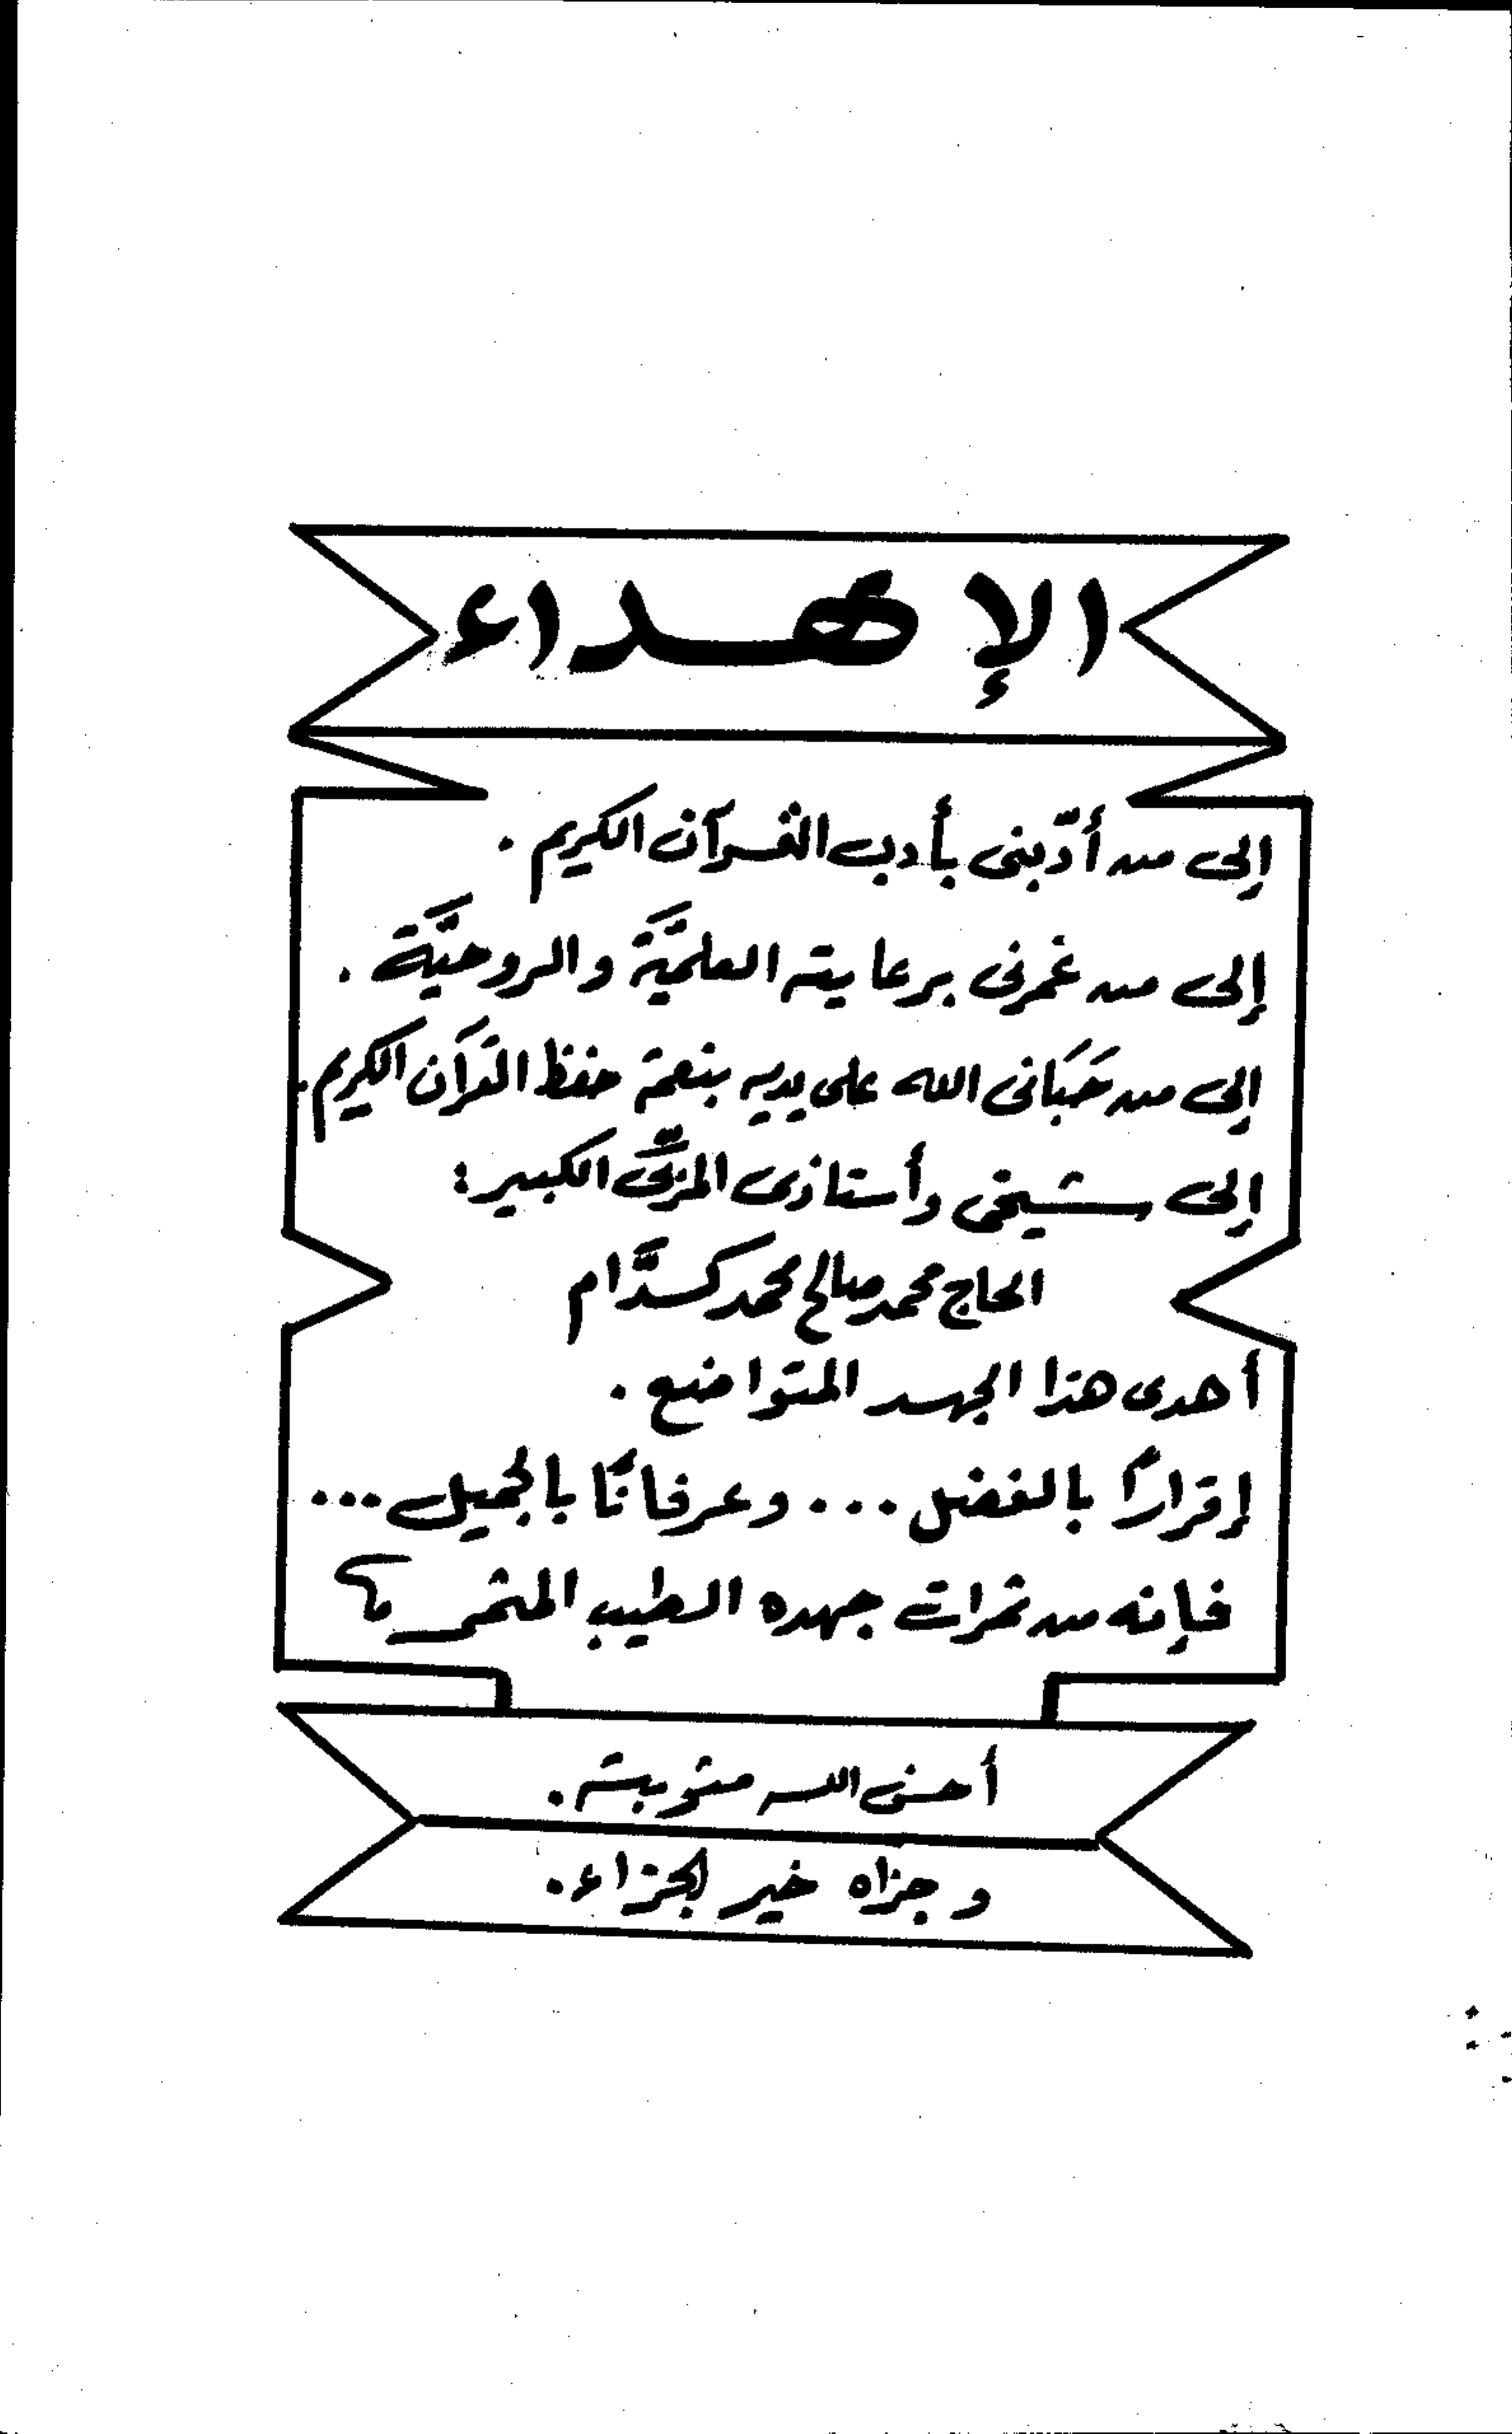 الإهداء
إلى من أدّبنى بأدب القرآن الكريم .
إلى من غمرنى برعايته العلميَّة والروحيَّة .
إلى من حَبَانى الله على يديه بنعمة حفظ القرآن الكريم .
إلى شيخى وأستاذى المزكِّى الكبير :
الحاج محمد صالح محمد كسدَّام
أهدى هذا الجهد المتواضع .
إقرارًا بالفضل ... وعرفانًا بالجميل ...
فإنه من ثمرات جهده الطيب المثمر
أحسن الله مثوبته .
وجزاه خير الجزاء .